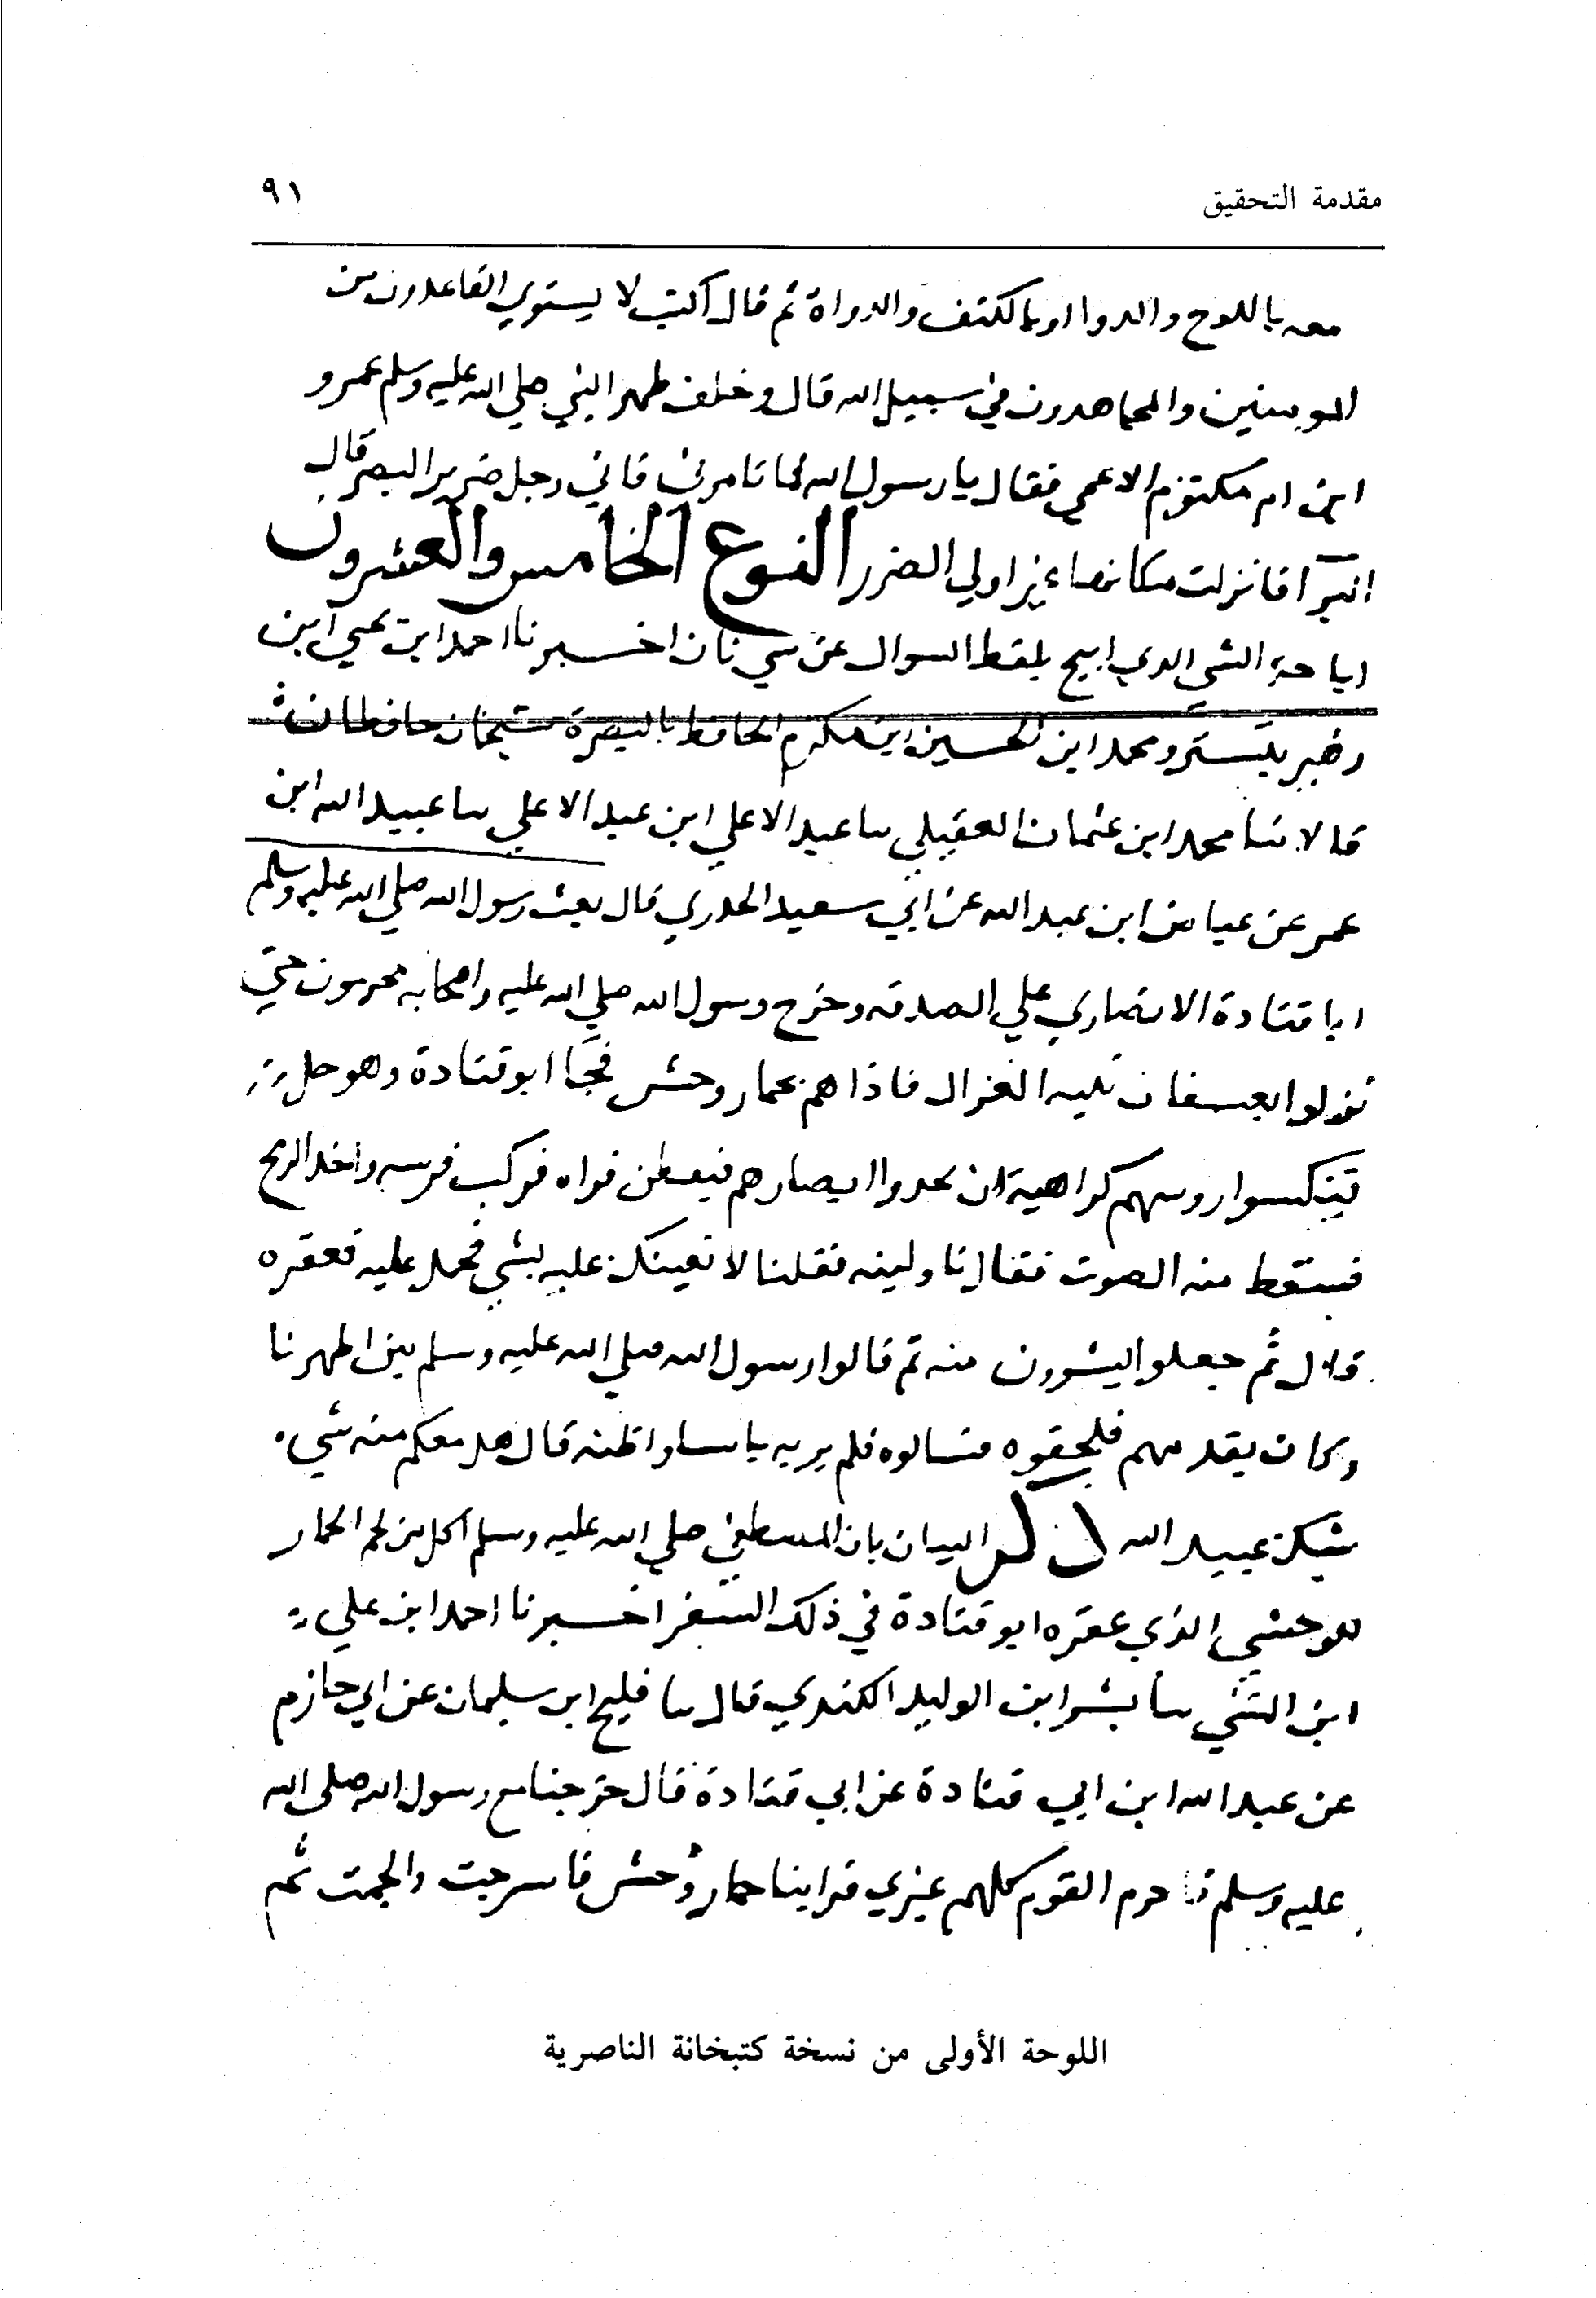 مقدمة التحقيق ٩١
معه باللوح والدوا او بالكتف والدواة ثم قال اكتب لا يستوي القاعدون من
المومنين والمجاهدون في سبيل الله قال وخلف ظهر النبي صلي الله عليه وسلم عمرو
ابن ام مكتوم الاعمي فقال يا رسول الله فما تامرني فاني رجل ضرير البصر قال
البرآ فانزلت مكانها غير اولي الضرر النوع الخامس والعشرون
اباحة الشي الذي ابيح بلفظ السوال عن شي ثان اخبرنا احمد ابن يحيي ابن
زهير بتستر ومحمد ابن الحسين ابن مكرم الحافظ بالبصرة شيخان حافظان
قالا ثنا محمد ابن عثمان العقيلي ثنا عبد الاعلي ابن عبد الاعلي ثنا عبيد الله ابن
عمر عن عياض ابن عبد الله عن ابي سعيد الخدري قال بعث رسول الله صلي الله عليه وسلم
ابا قتادة الانصاري علي الصدقه وخرج رسول الله صلي الله عليه واصحابه محرمون حتي
نزلوا بعسفان ثنيه الغزال فاذا هم بحمار وحش فجآ ابو قتادة وهو حل
فنكسوا روسهم كراهية ان يحدوا ابصارهم فيفطن فراه فركب فرسه واخذ الرمح
فسقط منه الصوت فقال ناولينه فقلنا لا نعينك عليه بشي فحمل عليه فعقره
قال ثم جعلوا يشوون منه ثم قالوا رسول الله صلي الله عليه وسلم بين اظهرنا
وكان يقدمهم فلحقوه فسالوه فلم ير به باسا واظنه قال هل معكم منه شي
شك عبيد الله ذكر البيان بان المصطفي صلي الله عليه وسلم اكل من لحم الحمار
الوحشي الذي عقره ابو قتادة في ذلك السفر اخبرنا احمد ابن علي
ابن المثني ثنا بشر ابن الوليد الكندي قال ثنا فليح ابن سليمان عن ابي حازم
عن عبد الله ابن ابي قتادة عن ابي قتادة قال خرجنا مع رسول الله صلي الله
عليه وسلم فاحرم القوم كلهم غيري فراينا حمار وحش فاسرجت والجمت ثم
اللوحة الأولى من نسخة كتبخانة الناصرية